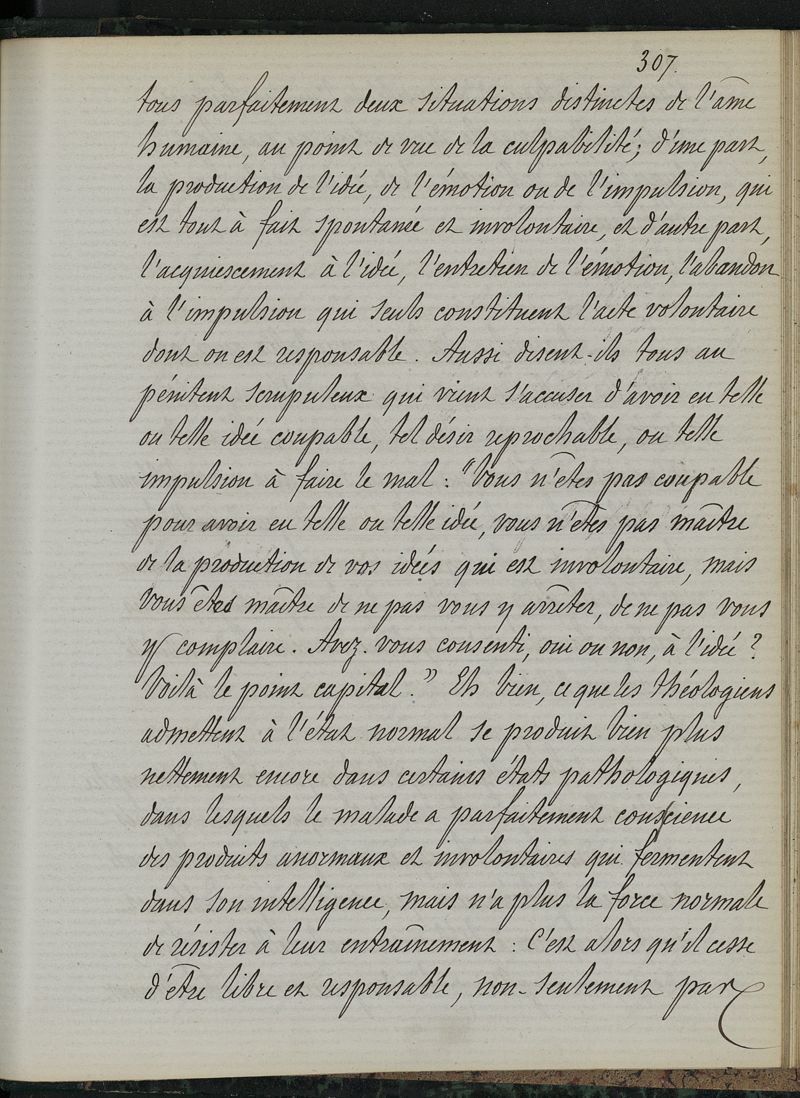 307.
tous parfaitement deux situations distinctes de l'âme
humaine, au point de vue de la culpabilité; d'une part,
la production de l'idée, de l'émotion ou de l'impulsion, qui
est tout à fait spontanée et involontaire, et d'autre part,
l'acquiescement à l'idée, l'entretien de l'émotion, l'abandon
à l'impulsion qui seuls constituent l'acte volontaire
dont on est responsable. Aussi disent-ils tous au
pénitent scrupuleux qui vient s'accuser d'avoir eu telle
ou telle idée coupable, tel désir reprochable, ou telle
impulsion à faire le mal : "Vous n'êtes pas coupable
pour avoir eu telle ou telle idée, vous n'êtes pas maître
de la production de vos idées qui est involontaire, mais
vous êtes maître de ne pas vous y arrêter, de ne pas vous
y complaire. Avez-vous consenti, oui ou non, à l'idée ?
Voilà le point capital." Eh bien, ce que les théologiens
admettent à l'état normal se produit bien plus
nettement encore dans certains états pathologiques,
dans lesquels le malade a parfaitement conscience
des produits anormaux et involontaires qui fermentent
dans son intelligence, mais n'a plus la force normale
de résister à leur entraînement : C'est alors qu'il cesse
d'être libre et responsable, non-seulement par